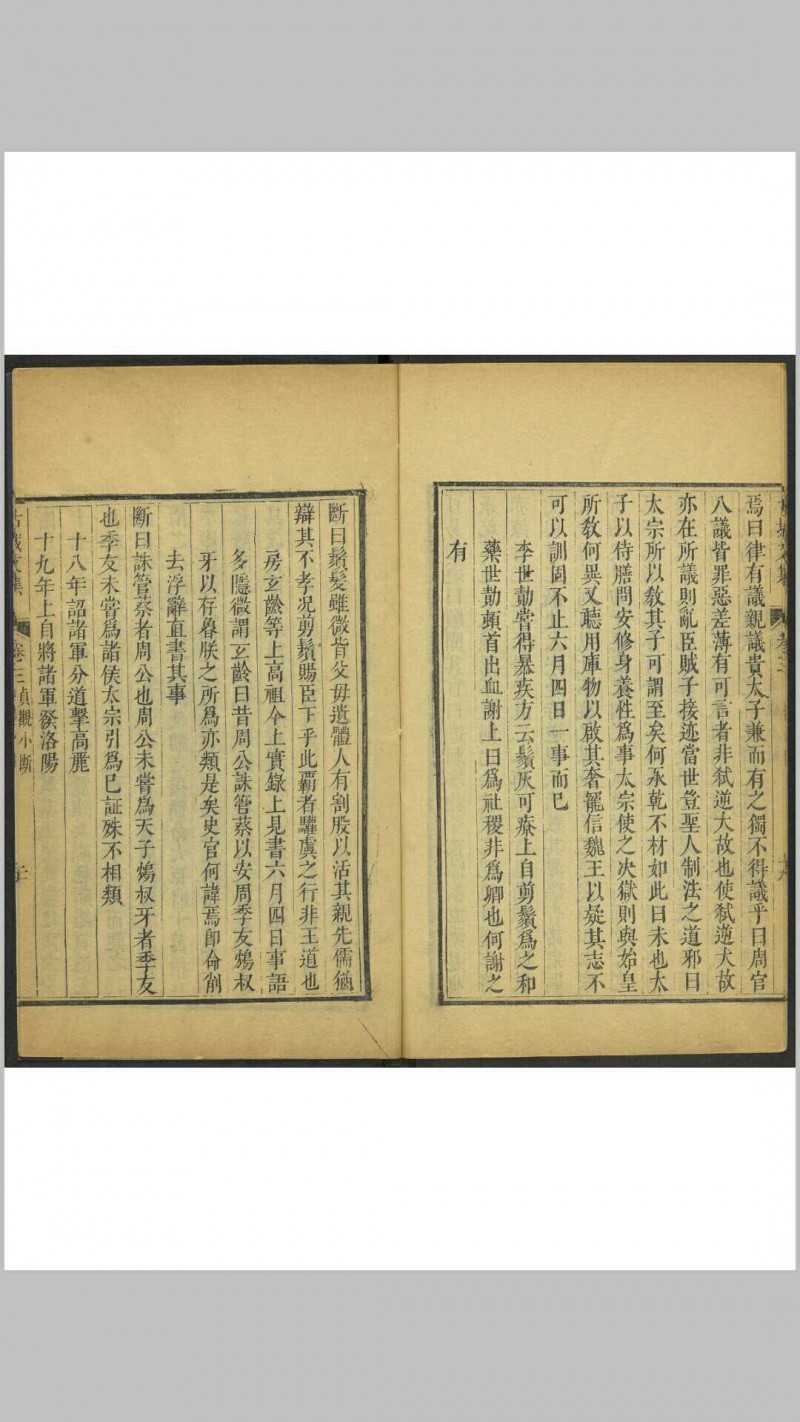 焉曰律有議親議貴太子兼而有之獨不得議乎曰周官
八議皆罪惡差薄有可言者非弑逆大故也使弑逆大故
亦在所議則亂臣賊子接迹當世豈聖人制法之道邪曰
太宗所以敎其子可謂至矣何承乾不材如此曰未也太
子以侍膳問安修身養性爲事太宗使之决獄則與始皇
所敎何異又聽用庫物以啟其奢寵信魏王以疑其志不
可以訓固不止六月四日一事而已
李世勣嘗得暴疾方云鬚灰可療上自剪鬚爲之和
藥世勣頓首出血謝上曰爲社稷非爲卿也何謝之
有
斷曰鬚髮雖微皆父毋遺體人有割股以活其親先儒猶
辯其不孝况剪鬚賜臣下乎此覇者驩虞之行非王道也
房玄齡等上高祖今上實錄上見書六月四日事語
多隱微謂玄齡曰昔周公誅管蔡以安周季友鴆叔
牙以存魯朕之所爲亦類是矣史官何諱焉卽命削
去浮辭直書其事
斷曰誅管蔡者周公也周公未嘗爲天子鴆叔牙者季友
也季友未嘗爲諸侯太宗引爲已証殊不相類
十八年詔諸軍分道擊高麗
十九年上自將諸軍發洛陽
文集 卷三 貞觀小斷